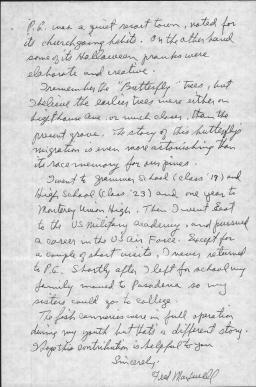 P.G. was a quiet resort town, noted for
its churchgoing habits. On the other hand
some of its Halloween pranks were
elaborate and creative.
I remember the "Butterfly" trees, but
I believe the earlier trees were either on
Lighthouse Ave. or much closer, than the
present grove. The story of this butterfly's
migration is even more astonishing than
its race memory for our pines.
I went to Grammar School (class '19) and
High School (Class '23) and one year to
Monterey Union High. Then I went East
to the US Military Academy, and pursued
a career in the US Air Force. Except for
a couple of short visits, I never returned
to P.G. Shortly after I left for school my
family moved to Pasadena so my
sisters could go to college.
The fish canneries were in full operation
during my youth but that's a different story.
I hope this contribution is helpful to you
Sincerely,
Fred